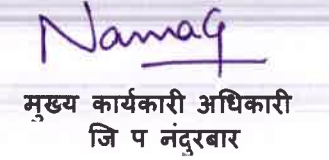 Namag
मुख्य कार्यकारी अधिकारी
जि प नंदुरबार